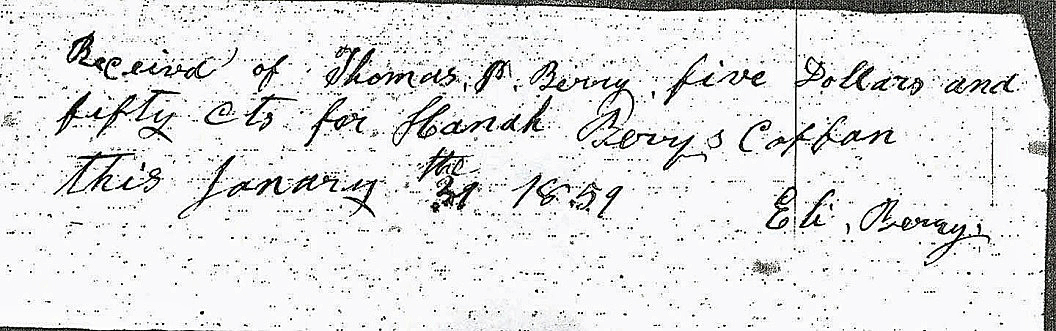 Received of Thomas. P. Berry. five Dollars and
fifty cts for Hanah Berrys Coffan
this Janary the 31 1859
Eli. Berry.